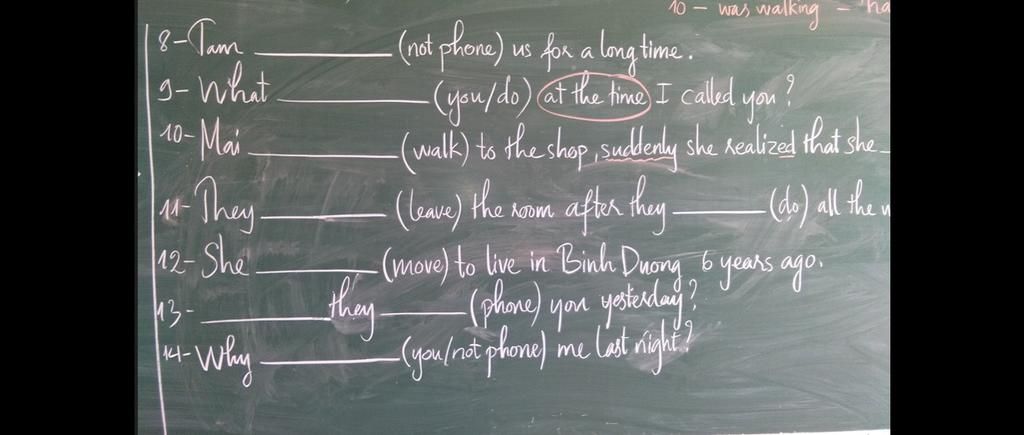 10 – was walking – ha
8 – Tam ________ (not phone) us for a long time.
9 – What ________ (you/do) at the time I called you?
10 – Mai ________ (walk) to the shop, suddenly she realized that she
11 – They ________ (leave) the room after they ________ (do) all the
12 – She ________ (move) to live in Binh Duong 6 years ago.
13 – ________ they ________ (phone) you yesterday?
14 – Why ________ (you/not phone) me last night?